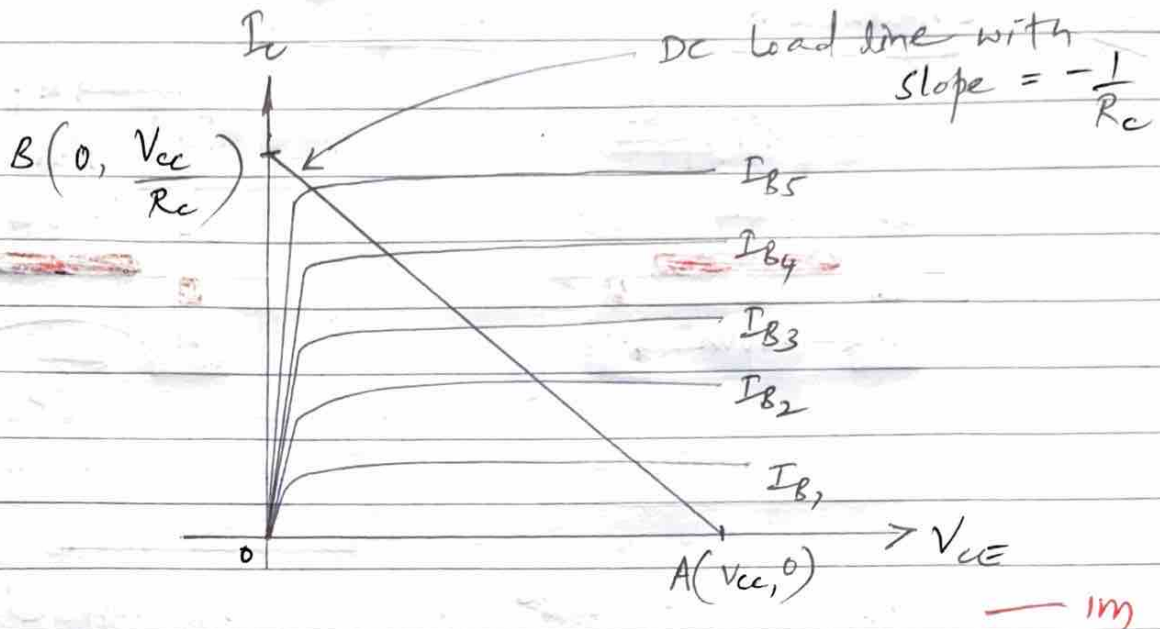 I_C
DC Load line with
slope = -1/R_C
B(0, V_CC/R_C)
I_B5
I_B4
I_B3
I_B2
I_B1
0
V_CE
A(V_CC, 0)
— 1m